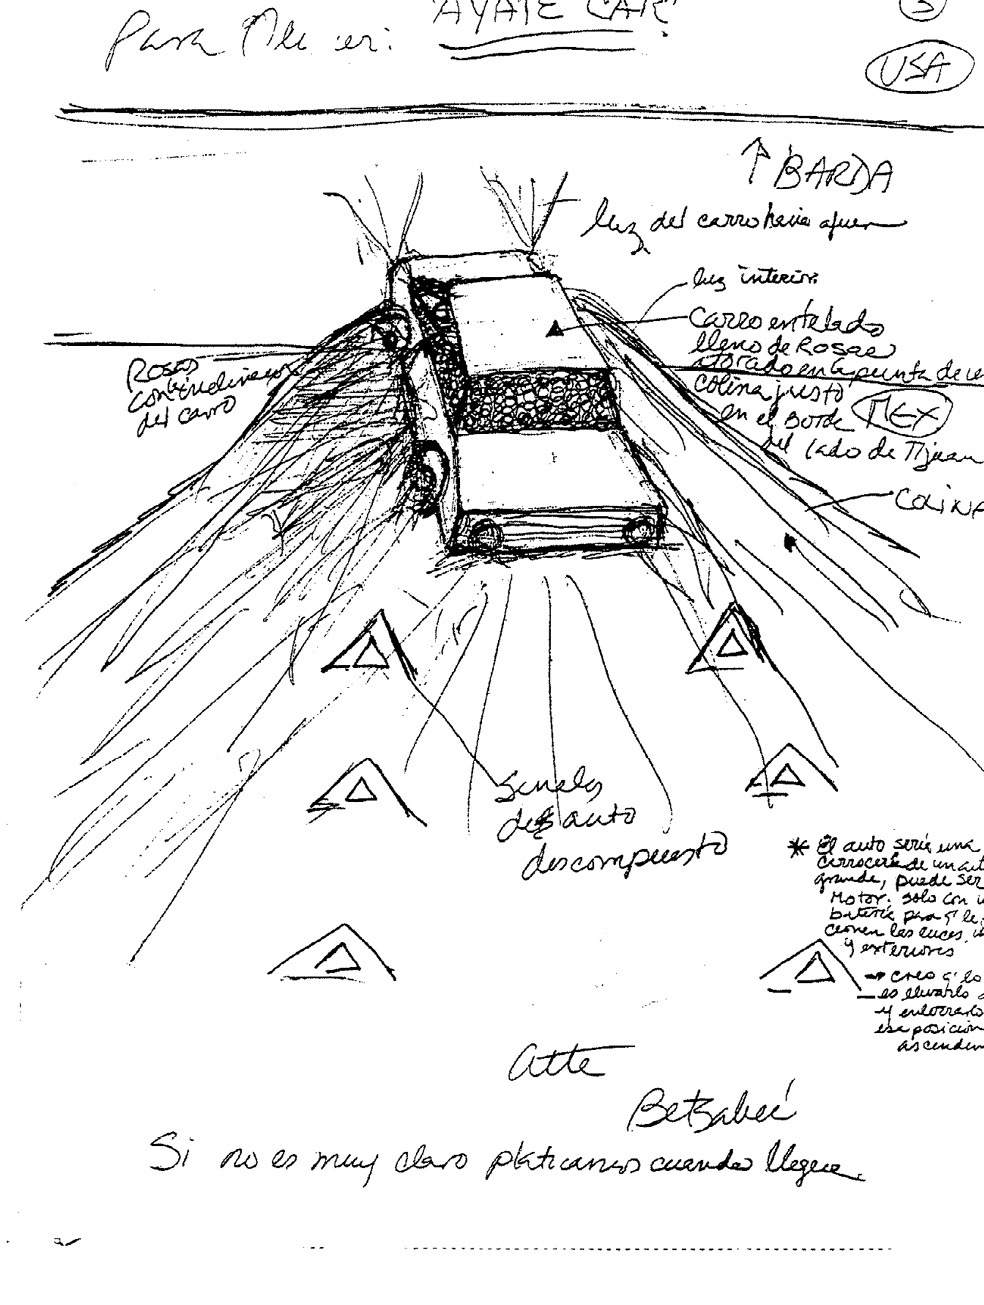 Para
"AYATE CAR"
3
USA
↑ BARDA
luz del carro hacia afuera
luz interior.
Carro entelado
lleno de Rosas
atorado en la punta de
colina justo
en el Borde MEX
del lado de Tijuan
Rosas
con
del carro
COLINA
Señales
de auto
descompuesto
* El auto sería una
carrocería de un aut
grande, puede ser
Motor. solo con
batería para q' le
cionen las luces,
y exteriores
→ creo q' lo
es elevarlo
y
esa posición
ascenden
Atte
Betsabeé
Si no es muy claro platicamos cuando llegue.